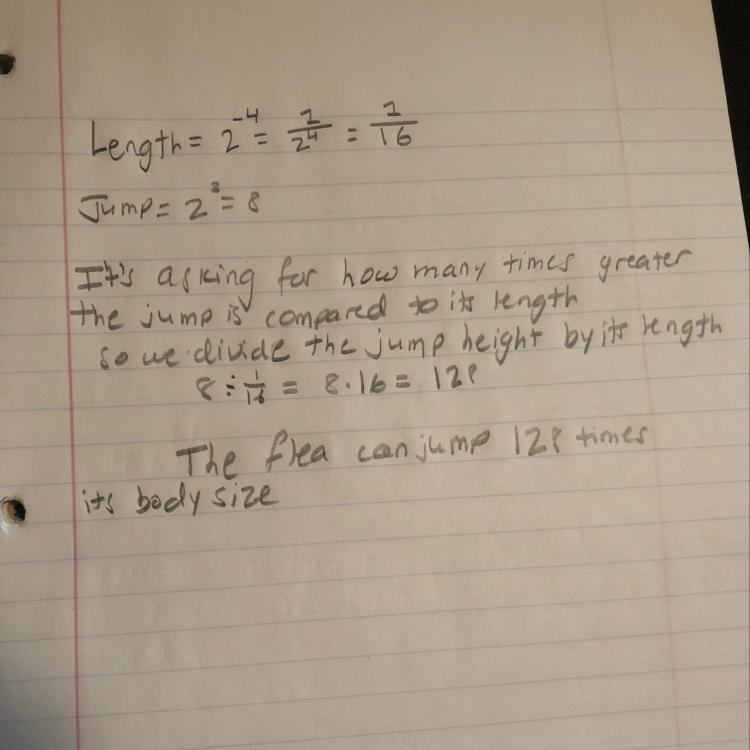 Length = 2^-4 = 1/2^4 = 1/16
Jump = 2^3 = 8
It's asking for how many times greater
the jump is compared to its length
so we divide the jump height by its length
8 ÷ 1/16 = 8 · 16 = 128
The flea can jump 128 times
its body size